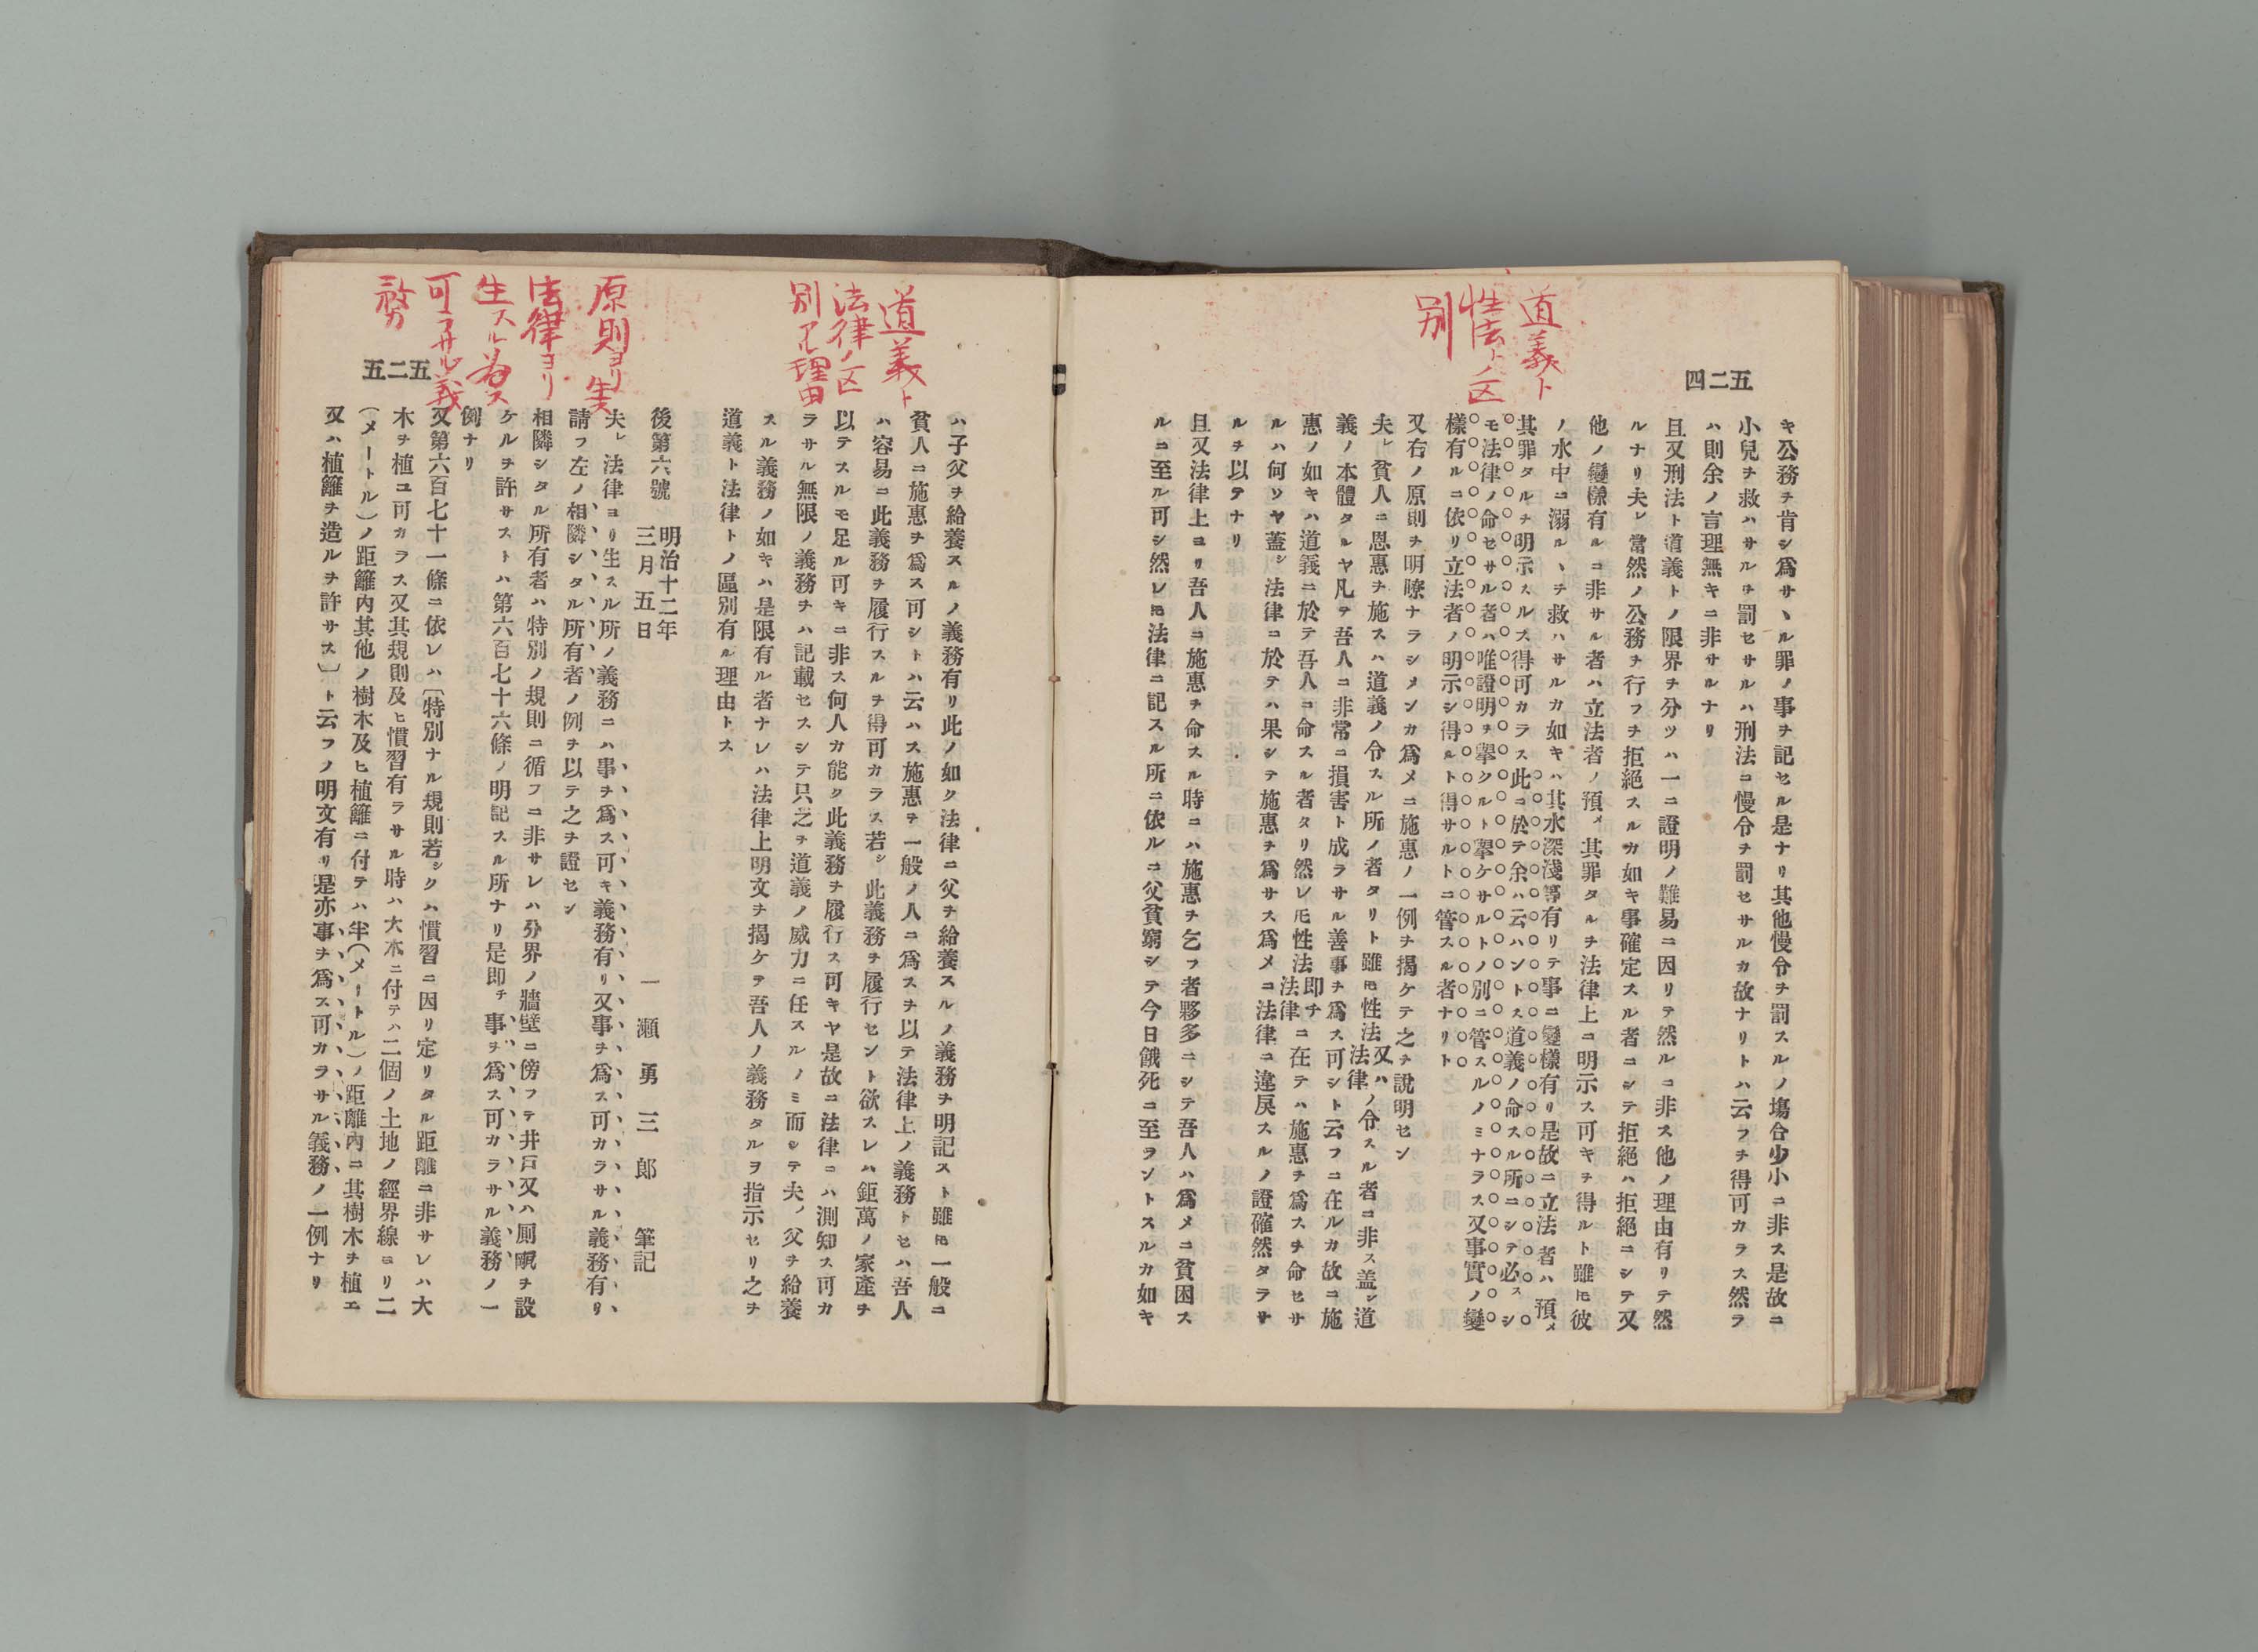 道義ト
性法トノ区
別
五二四
キ公務ヲ肯シ爲サヽル罪ノ事ヲ記セル是ナリ其他慢令ヲ罰スルノ塲合少小ニ非ス是故ニ
小兒ヲ救ハサルヲ罰セサルハ刑法ニ慢令ヲ罰セサルカ故ナリトハ云フヲ得可カラス然ラ
ハ則余ノ言理無キニ非サルナリ
且又刑法ト道義トノ限界ヲ分ツハ一ニ證明ノ難易ニ因リテ然ルニ非ス他ノ理由有リテ然
ルナリ夫レ當然ノ公務ヲ行フヲ拒絕スルカ如キ事確定スル者ニシテ拒絕ハ拒絕ニシテ又
他ノ變樣有ルコ非サル者ハ立法者ノ預メ其罪タルヲ法律上ニ明示ス可キヲ得ルト雖𪜈彼
ノ水中ニ溺ルヽヲ救ハサルカ如キハ其水深淺等有リテ事ニ變樣有リ是故ニ立法者ハ預メ
其罪タルヲ明示スルヲ得可カラス此ニ於テ余ハ云ハントス道義ノ命スル所ニシテ必スシ
モ法律ノ命セサル者ハ唯證明ヲ擧クルト擧ケサルトノ別ニ管スルノミナラス又事實ノ變
樣有ルニ依リ立法者ノ明示シ得ルト得サルトニ管スル者ナリト
又右ノ原則ヲ明瞭ナラシメンカ爲メニ施惠ノ一例ヲ揭ケテ之ヲ說明セン
夫レ貧人ニ恩惠ヲ施スハ道義ノ令スル所ノ者タリト雖𪜈性法又ハ法律ノ令スル者ニ非ス蓋シ道
義ノ本體タルヤ凡テ吾人ニ非常ニ損害ト成ラサル善事ヲ爲ス可シト云フニ在ルカ故ニ施
惠ノ如キハ道義ニ於テ吾人ニ命スル者タリ然レ𪜈性法即チ法律ニ在テハ施惠ヲ爲スヲ命セサ
ルハ何ソヤ蓋シ法律ニ於テハ果シテ施惠ヲ爲サス爲メニ法律ニ違戾スルノ證確然タラサ
ルヲ以テナリ
且又法律上ヨリ吾人ニ施惠ヲ命スル時ニハ施惠ヲ乞フ者夥多ニシテ吾人ハ爲メニ貧困ス
ルニ至ル可シ然レ𪜈法律ニ記スル所ニ依ルニ父貧窮シテ今日餓死ニ至ラントスルカ如キ
道義ト
法律ノ区
別アル理由
原則ヨリ生
法律ヨリ
生スル為ス
可ラサル義
務
五二五
ハ子父ヲ給養スルノ義務有リ此ノ如ク法律ニ父ヲ給養スルノ義務ヲ明記スト雖𪜈一般ニ
貧人ニ施惠ヲ爲ス可シトハ云ハス施惠ヲ一般ノ人ニ爲スヲ以テ法律上ノ義務トセハ吾人
ハ容易ニ此義務ヲ履行スルヲ得可カラス若シ此義務ヲ履行セント欲スレハ鉅萬ノ家產ヲ
以テスルモ足ル可キニ非ス何人カ能ク此義務ヲ履行ス可キヤ是故ニ法律ニハ測知ス可カ
ラサル無限ノ義務ヲハ記載セスシテ只之ヲ道義ノ威力ニ任スルノミ而シテ夫ノ父ヲ給養
スル義務ノ如キハ是限有ル者ナレハ法律上明文ヲ揭ケテ吾人ノ義務タルヲ指示セリ之ヲ
道義ト法律トノ區別有ル理由トス
後第六號 明治十二年三月五日 一瀨勇三郎 筆記
夫レ法律ヨリ生スル所ノ義務ニハ事ヲ爲ス可キ義務有リ又事ヲ爲ス可カラサル義務有リ
請フ左ノ相隣シタル所有者ノ例ヲ以テ之ヲ證セン
相隣シタル所有者ハ特別ノ規則ニ循フニ非サレハ分界ノ牆壁ニ傍フテ井戶又ハ厠𡈽ヲ設
ケルヲ許サストハ第六百七十六條ノ明記スル所ナリ是即チ事ヲ爲ス可カラサル義務ノ一
例ナリ
又第六百七十一條ニ依レハ〔特別ナル規則若シクハ慣習ニ因リ定リタル距離ニ非サレハ大
木ヲ植ユ可カラス又其規則及ヒ慣習有ラサル時ハ大木ニ付テハ二個ノ土地ノ經界線ヨリ二
(メートル)ノ距籬內其他ノ樹木及ヒ植籬ニ付テハ半(メートル)ノ距離內ニ其樹木ヲ植エ
又ハ植籬ヲ造ルヲ許サス〕ト云フノ明文有リ是亦事ヲ爲ス可カラサル義務ノ一例ナリ